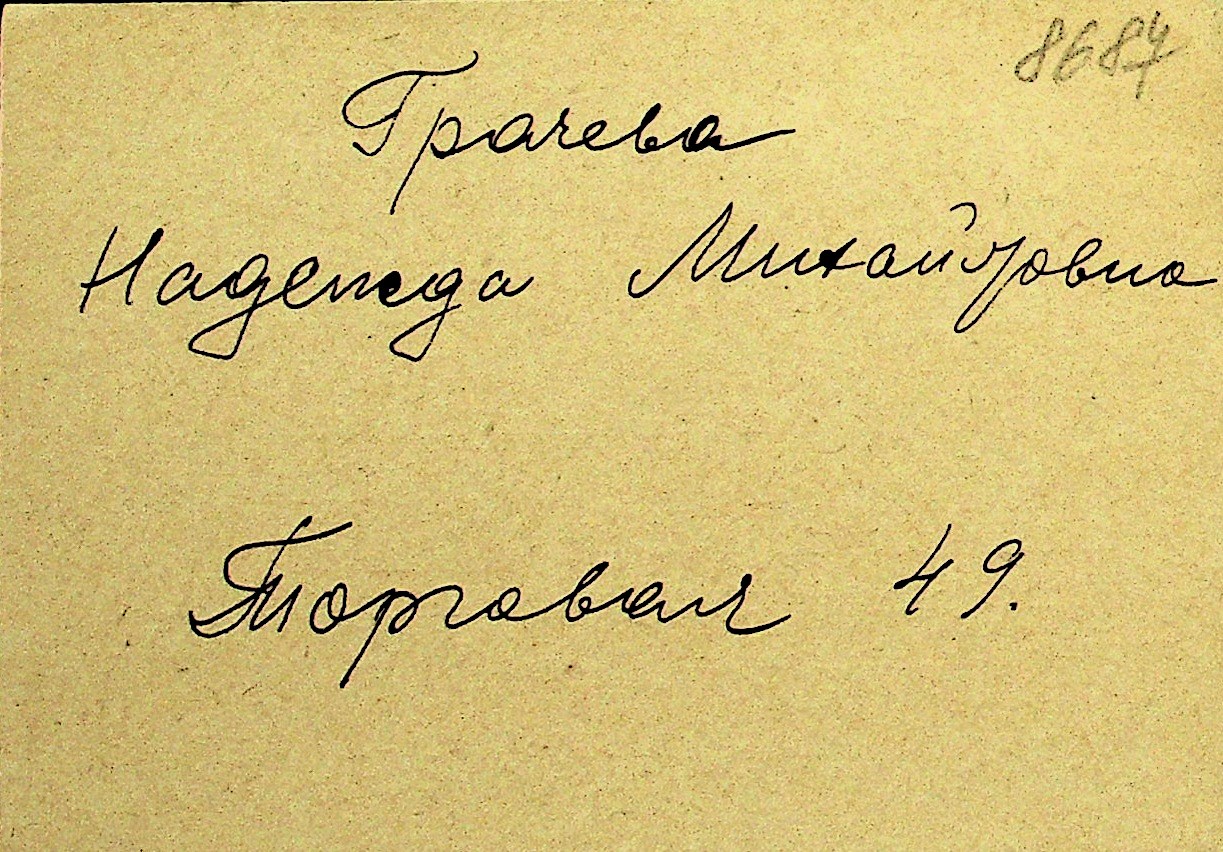 8684
Грачева
Надежда Михайловна
Торговая 49.